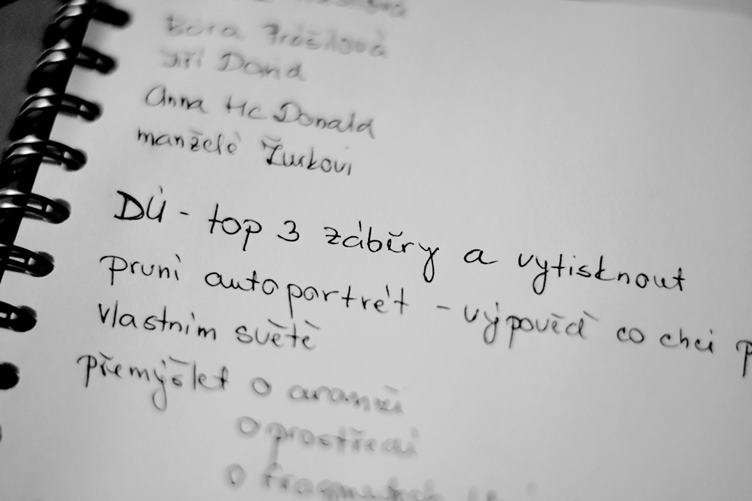 Bára Prášilová
Jiří David
Anna McDonald
manželé Žůrkovi
DÚ - top 3 záběry a vytisknout
první autoportrét - výpověď co chci p
vlastním světě
přemýšlet o aranži
o prostředí
o